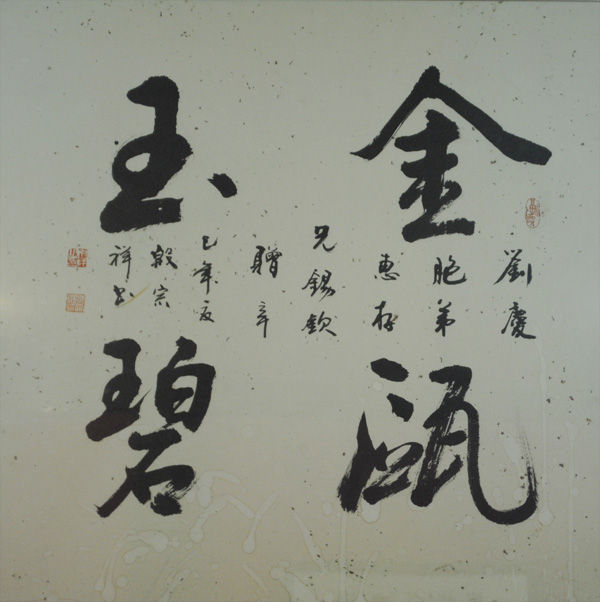 金甌
玉碧
劉慶
胞弟
惠存
兄錫欽
贈 辛
巳年夏
宗
祥書